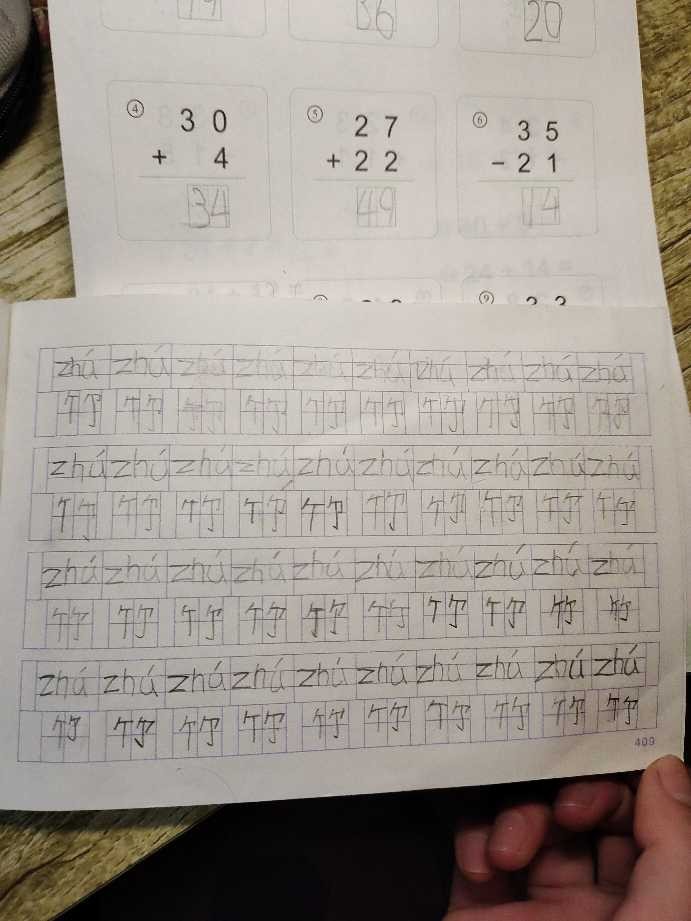 36 20
④ ⑤ ⑥
3 0 2 7 3 5
+ 4 + 2 2 - 2 1
34 49 14
⑨
zhú zhú zhú zhú zhú zhú zhú zhú zhú zhú
竹 竹 竹 竹 竹 竹 竹 竹 竹 竹
zhú zhú zhú zhú zhú zhú zhú zhú zhú zhú
竹 竹 竹 竹 竹 竹 竹 竹 竹 竹
zhú zhú zhú zhú zhú zhú zhú zhú zhú zhú
竹 竹 竹 竹 竹 竹 竹 竹 竹 竹
zhú zhú zhú zhú zhú zhú zhú zhú zhú zhú
竹 竹 竹 竹 竹 竹 竹 竹 竹 竹
409